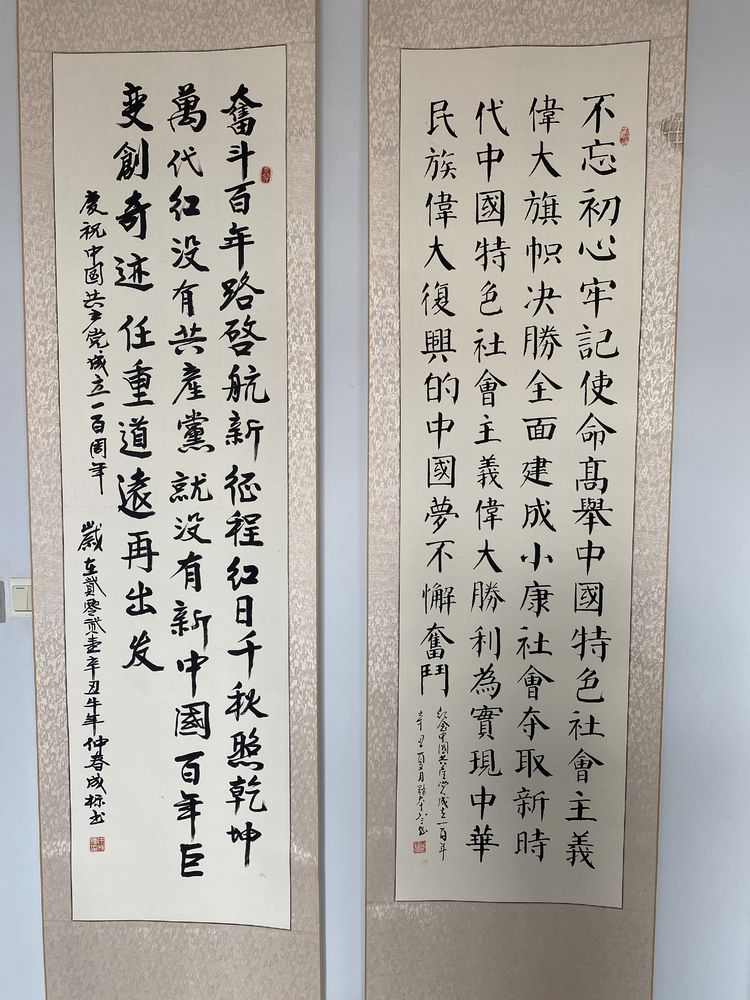 不忘初心牢記使命髙舉中國特色社會主義
偉大旗帜决勝全面建成小康社會夺取新時
代中國特色社會主義偉大勝利為實現中華
民族偉大復興的中國夢不懈奮鬥
紀念中國共產党成立一百年
辛丑夏月
奮斗百年路啓航新征程红日千秋照乾坤
萬代红没有共產黨就没有新中國百年巨
变創奇迹任重道遠再出发
慶祝中國共产党成立一百周年 歲在貳零贰壹辛丑牛年仲春成标书